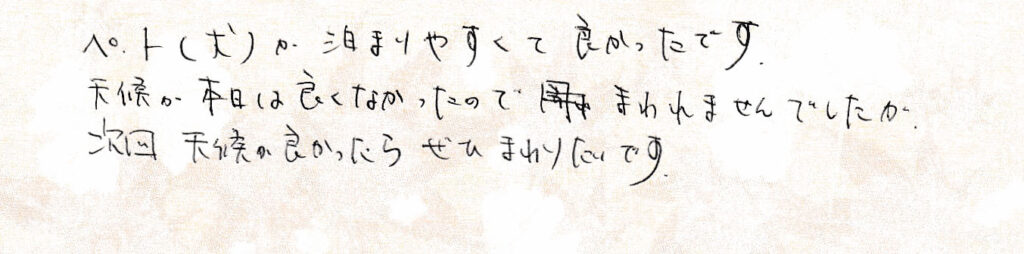 ペット(犬)が泊まりやすくて良かったです.
天候が本日は良くなかったので まわれませんでしたが.
次回天候が良かったらぜひまわりたいです.